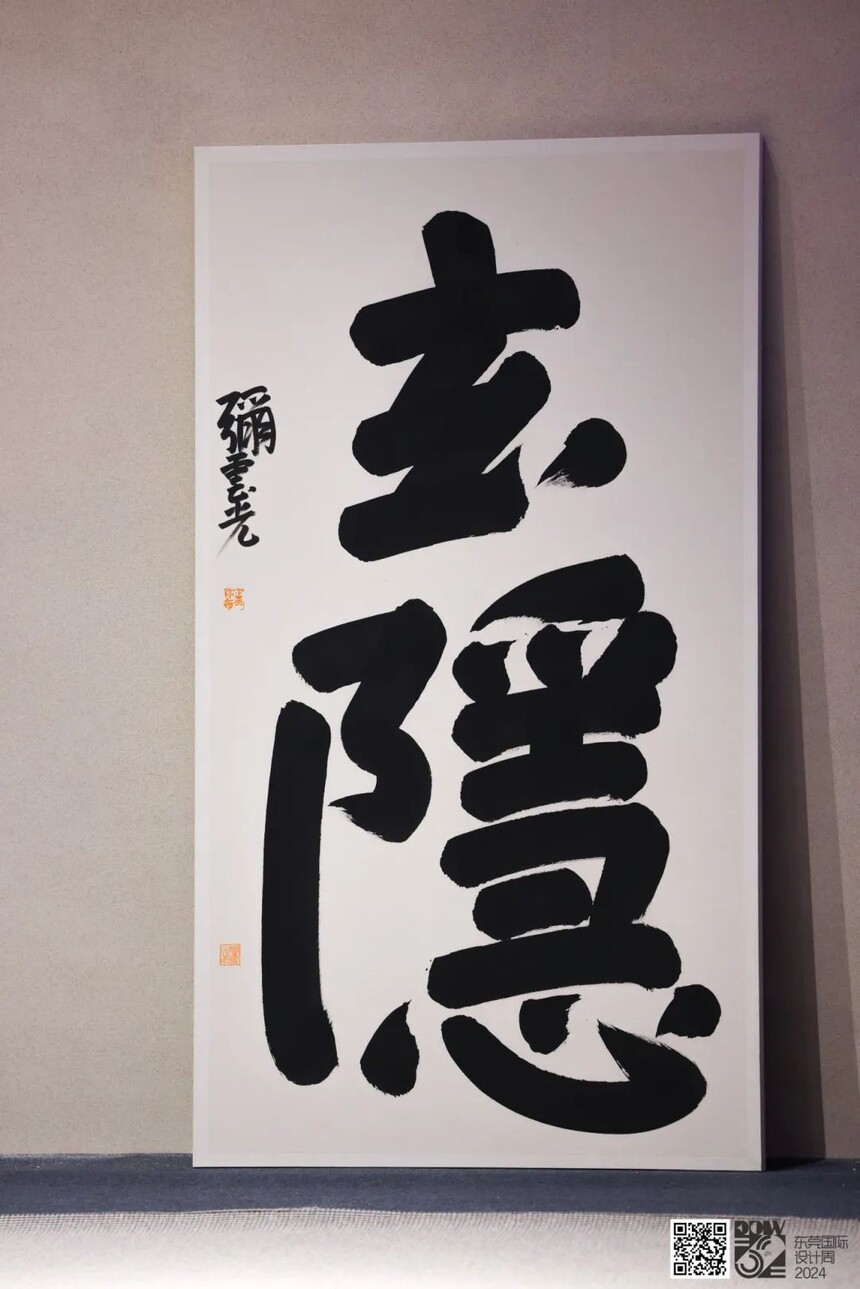 玄隱
彌雲光
东莞国际
设计周
2024